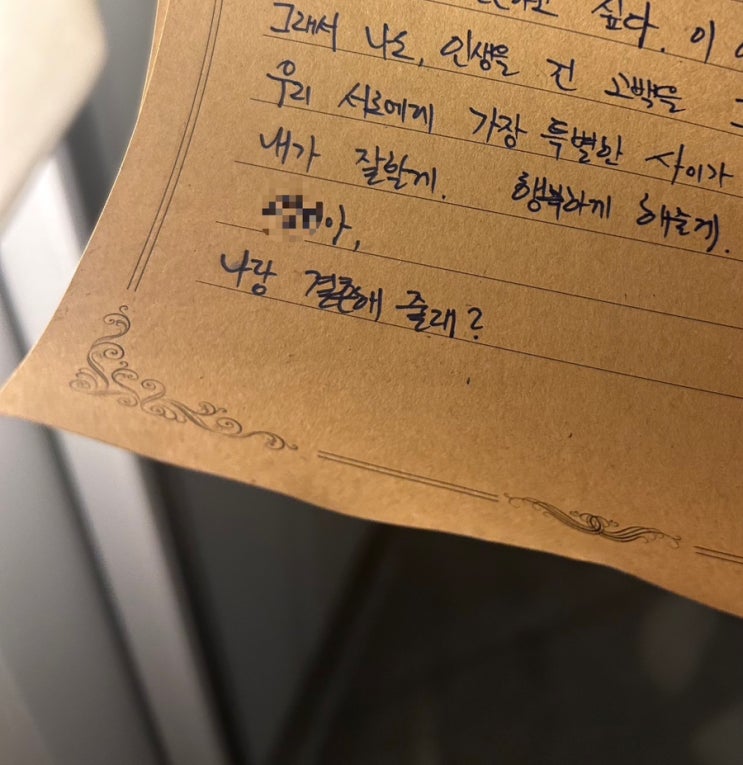 싶다. 이
그래서 나도, 인생을 건 고백을
우리 서로에게 가장 특별한 사이가
내가 잘할게. 행복하게 해줄게.
아,
나랑 결혼해 줄래?